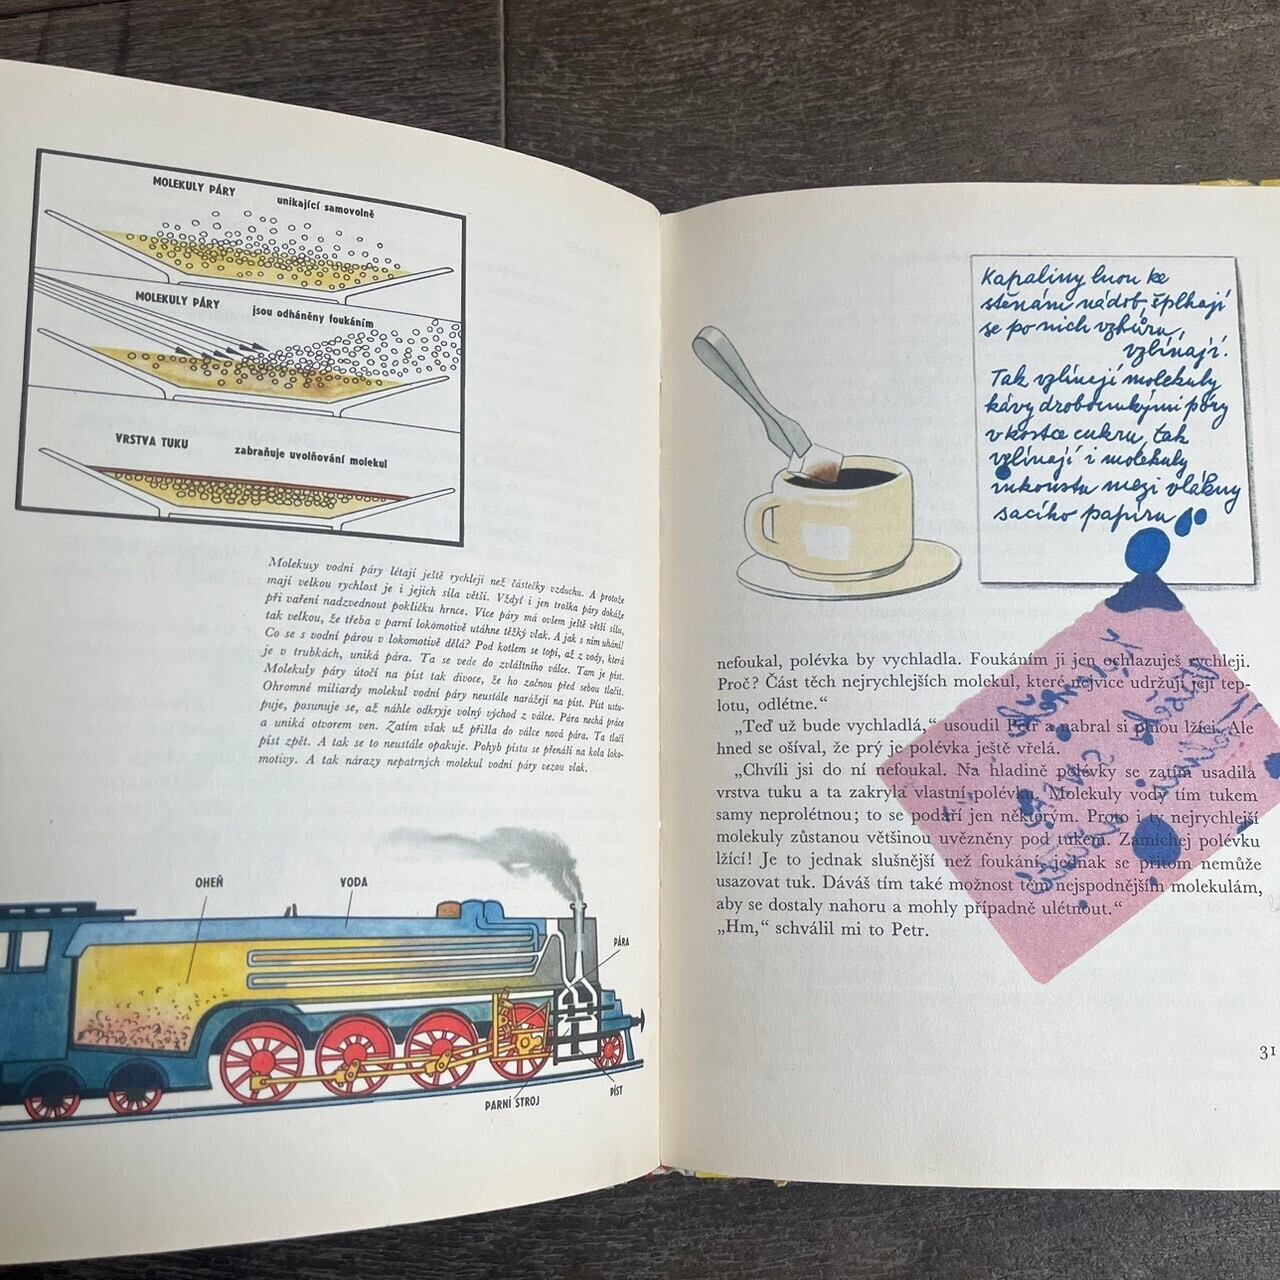 MOLEKULY PÁRY unikající samovolně
MOLEKULY PÁRY jsou odháněny foukáním
VRSTVA TUKU zabraňuje uvolňování molekul
Molekuly vodní páry létají ještě rychleji než částečky vzduchu. A protože
mají velkou rychlost je i jejich síla větší. Vždyť i jen troška páry dokáže
při vaření nadzvednout pokličku hrnce. Více páry má ovšem ještě větší sílu,
tak velkou, že třeba v parní lokomotivě utáhne těžký vlak. A jak s ním uhání!
Co se s vodní párou v lokomotivě dělá? Pod kotlem se topí, až z vody, která
je v trubkách, uniká pára. Ta se vede do zvláštního válce. Tam je píst.
Molekuly páry útočí na píst tak divoce, že ho začnou před sebou tlačit.
Ohromné miliardy molekul vodní páry neustále narážejí na píst. Píst ustu-
puje, posunuje se, až náhle odkryje volný východ z válce. Pára nechá práce
a uniká otvorem ven. Zatím však už přišla do válce nová pára. Ta tlačí
píst zpět. A tak se to neustále opakuje. Pohyb pístu se přenáší na kola loko-
motivy. A tak nárazy nepatrných molekul vodní páry vezou vlak.
OHEŇ
VODA
PÁRA
PARNÍ STROJ
PÍST
Kapaliny lnou ke
stěnám nádob, šplhají
se po nich vzhůru,
vzlínají.
Tak vzlínají molekuly
kávy drobounkými póry
v kostce cukru, tak
vzlínají i molekuly
inkoustu mezi vlákny
sacího papíru
nefoukal, polévka by vychladla. Foukáním ji jen ochlazuješ rychleji.
Proč? Část těch nejrychlejších molekul, které nejvíce udržují její tep-
lotu, odlétne.“
„Teď už bude vychladlá,“ usoudil Petr a nabral si plnou lžíci. Ale
hned se ošíval, že prý je polévka ještě vřelá.
„Chvíli jsi do ní nefoukal. Na hladině polévky se zatím usadila
vrstva tuku a ta zakryla vlastní polévku. Molekuly vody tím tukem
samy neprolétnou; to se podaří jen některým. Proto i ty nejrychlejší
molekuly zůstanou většinou uvězněny pod tukem. Zamíchej polévku
lžící! Je to jednak slušnější než foukání, jednak se přitom nemůže
usazovat tuk. Dáváš tím také možnost těm nejspodnějším molekulám,
aby se dostaly nahoru a mohly případně ulétnout.“
„Hm,“ schválil mi to Petr.
31